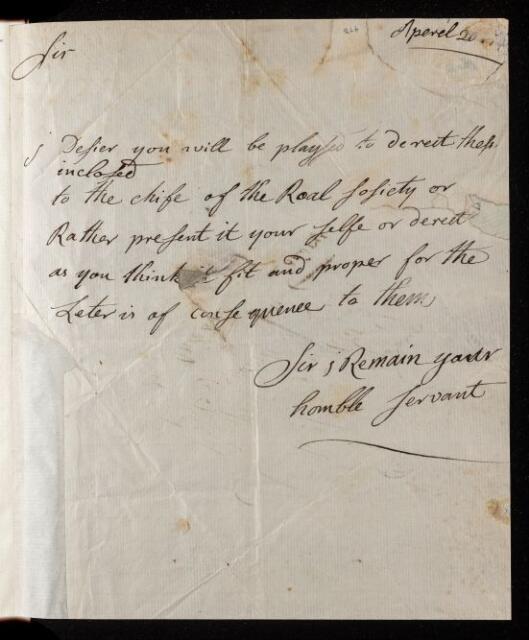 Aperel 20
Sir
j Desier you will be playsed to derect thes
inclosed
to the chife of the Roal Sosiety or
Rather present it your selfe or derect
as you think fit and proper for the
Later is of consequence to them
Sir j Remain your
homble Servant